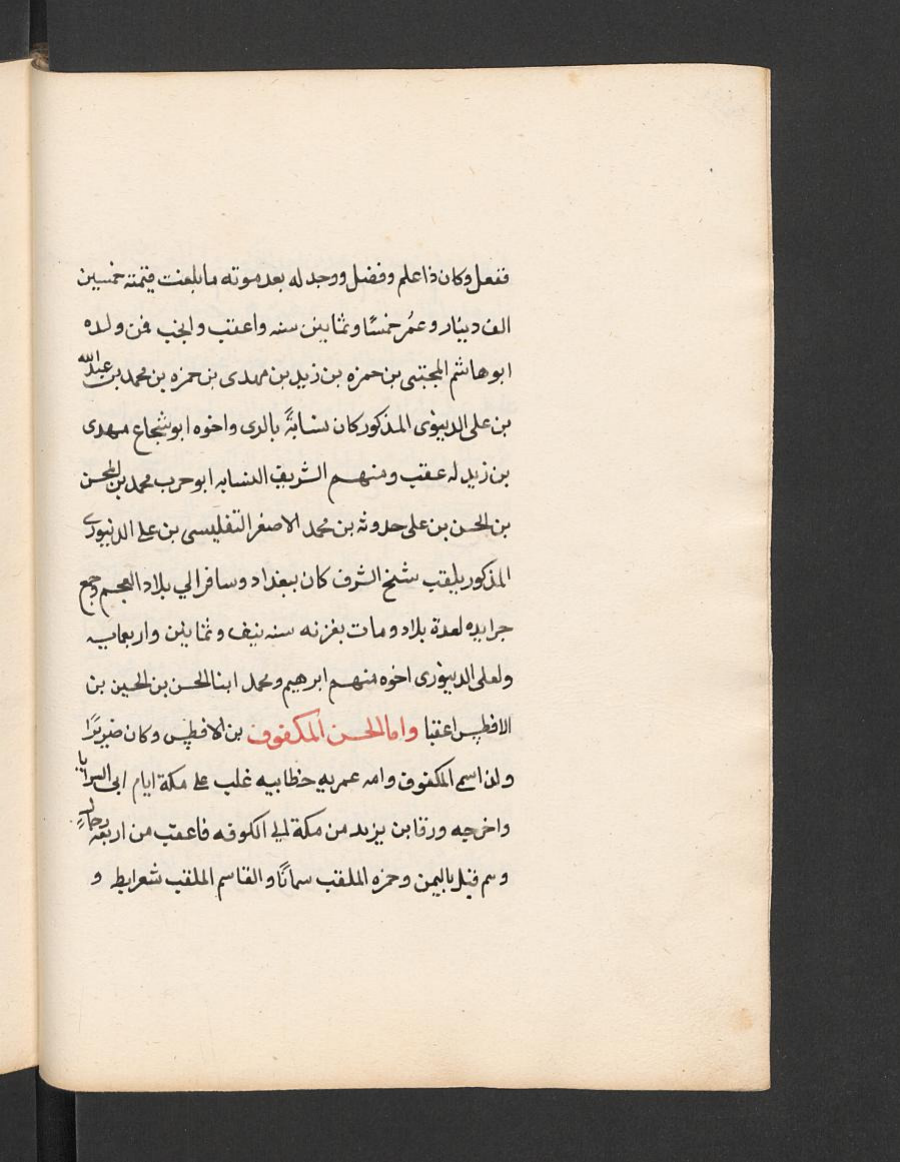 ففعل وكان ذا علم وفضل ووجد له بعد موته ما بلغت قيمته خمسين
الف دينار وعمر خمسًا وثمانين سنه واعقب وانجب فمن ولده
ابو هاشم المجتبى بن حمزه بن زيد بن مهدى بن حمزه بن محمد بن عبدالله
بن على الدينورى المذكور كان نسابةً بالرى واخوه ابو شجاع مهدى
بن زيد له عقب ومنهم الشريف النسابه ابو حرب محمد بن المحسن
بن الحسن بن على حدونه بن محمد الاصغر التفليسى بن على الدنيورى
المذكور يلقب شيخ الشرف كان ببغداد وسافر الي بلاد العجم وجمع
جرايده لعدة بلاد ومات بغزنه سنه نيف وثمانين واربعمايه
ولعلى الدينورى اخوه منهم ابرهيم ومحمد ابنا الحسن بن الحسين بن
الافطس اعقبا واما الحسن المكفوف بن الافطس وكان ضريرًا
ولذا سمي المكفوف وامه عمريه خطابيه غلب على مكة ايام ابى السرايا
واخرجه ورقا بن يزيد من مكة الي الكوفه فاعقب من اربعة رجالٍ
وهم قتيل باليمن وحمزه الملقب سمانًا والقاسم الملقب شعرابط و